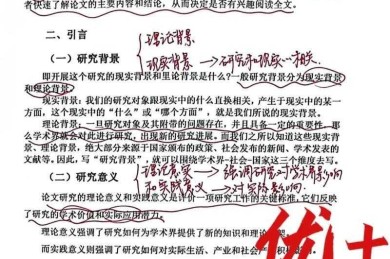 者快速了解论文的主要内容和结论，从而决定是否有兴趣阅读全文。
二、引言
（一）研究背景
理论背景
现实背景→研究和现实
即开展这个研究的现实背景和理论背景是什么？一般研究背景分为现实背景
和理论背景。
现实背景：我们的研究对象跟现实中的什么直接相关，产生于现实中的某一
方面，这个现实中的“什么”或“哪个方面”，就是我们所说的现实背景。
理论背景：一旦研究对象及其附带的问题存在，并且具备一定的重要性，那
么学术界就会对此进行研究，出现新的研究进展。而我们之所以知道这些现实背
景、理论背景，绝大部分来源于国家颁布的政策、社会发布的新闻、学术发表的
文献等。因此，写“研究背景”，就可以围绕学术界-社会-国家这三个维度去写。
（二）研究意义
理论意义→强调研究对学术界影响
和实践意义→对实际影响
论文研究的理论意义和实践意义是评价一项研究工作的关键标准，它们反映
了研究的学术价值和实际应用潜力。
理论意义强调了研究如何为学术界提供了新的知识和理论
而实践意义则强调了研究如何对实际生活、产业和社会产生积极
优士